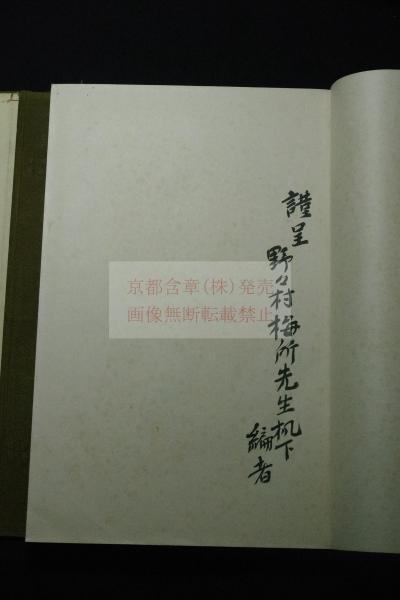 謹呈
野々村梅所先生机下
編者
京都含章(株)発売
画像無断転載禁止